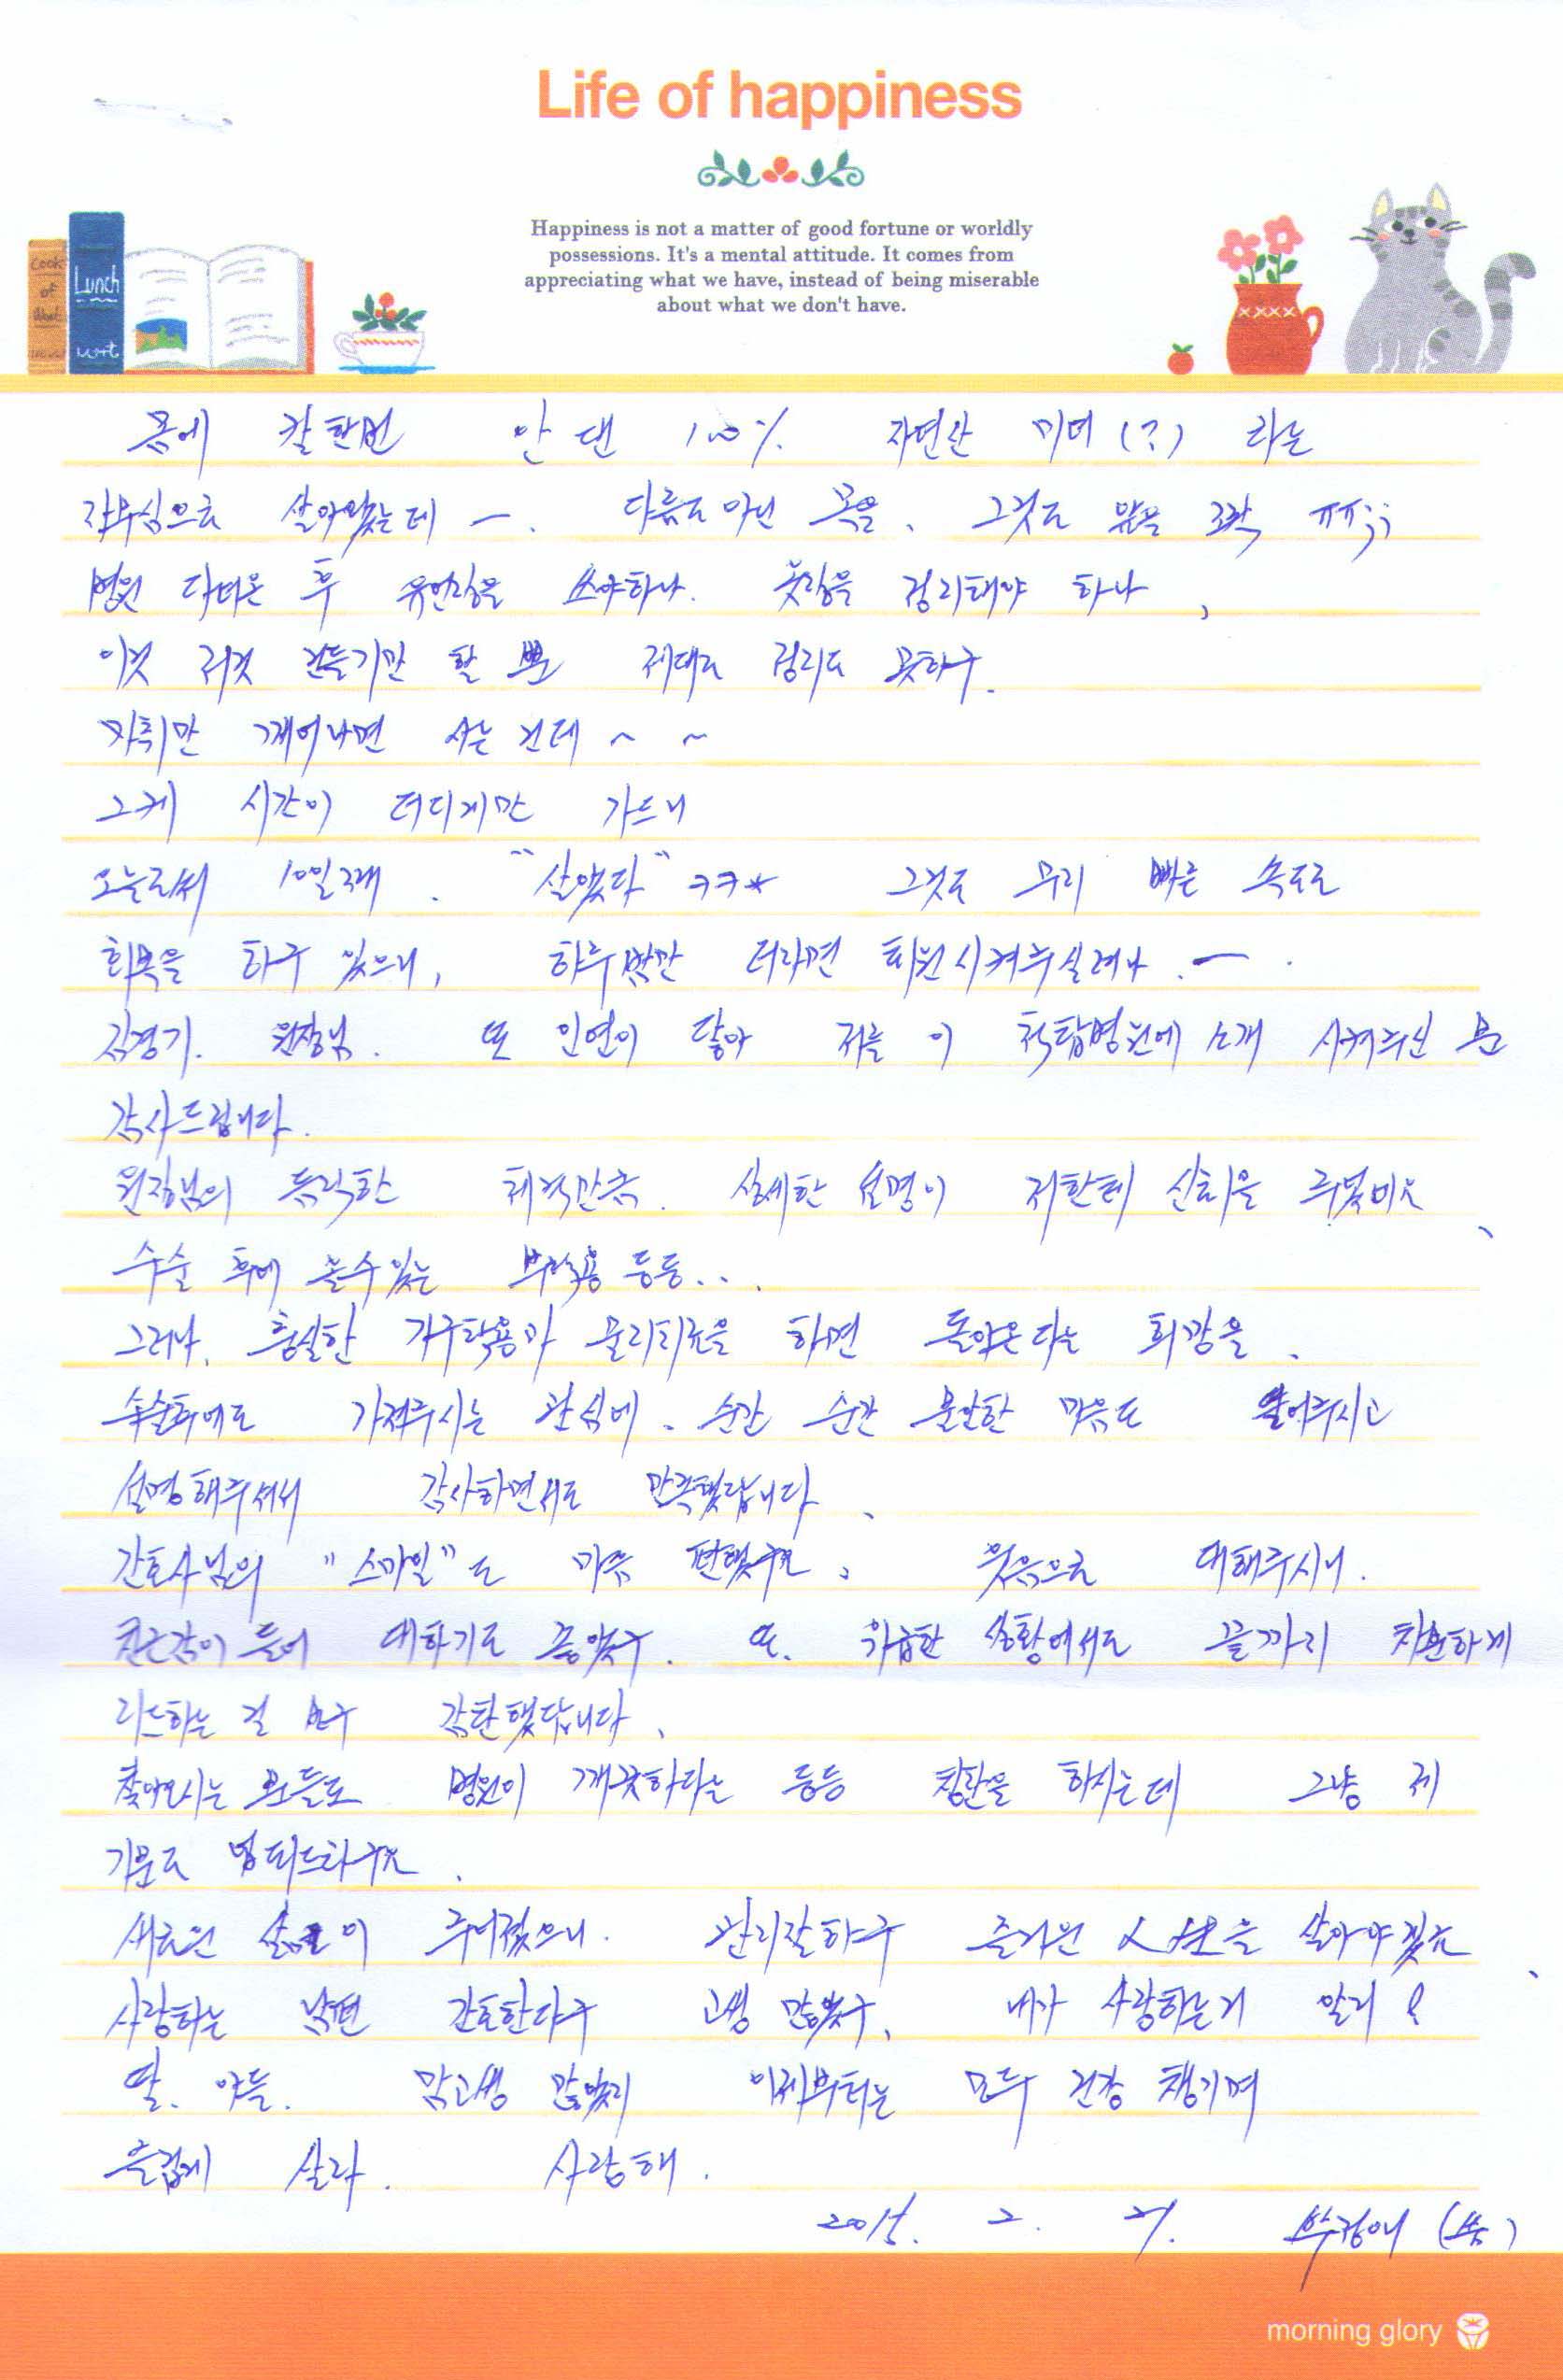 Life of happiness
Happiness is not a matter of good fortune or worldly
possessions. It's a mental attitude. It comes from
appreciating what we have, instead of being miserable
about what we don't have.
Cook
of
Lunch
몸에 칼한번 안 댄 100% 자연산 미녀(?) 라는
자부심으로 살아왔는데 ㅡ. 다름도 아닌 목을, 그것도 앞을 ㅠㅠ;;
병원 다녀온 후 유언장을 쓰야하나. 옷장을 정리해야 하나,
이것 저것 건들기만 할 뿐 제대로 정리도 못하구.
마취만 깨어나면 사는 건데 ~ ~
그케 시간이 더디게만 가드니
오늘로써 10일째. "살았다" ㅋㅋ* 그것도 무리 빠른 속도로
회복을 하구 있으니, 하루밤만 더라면 퇴원시켜주실려나.ㅡ.
김경기. 원장님. 또 인연이 닿아 저를 이 척탑병원에 소개 시켜주신 분
감사드립니다.
원장님의 듬직한 체격만큼. 상세한 설명이 저한테 신뢰을 주었네요
수술 후에 올수있는 부작용 등등...
그러나, 충실한 기구착용과 물리치료을 하면 돌아온다는 희망을,
수술후에도 가져주시는 관심에. 순간 순간 불안한 마음도 덜어주시고
설명해주셔서 감사하면서도 만족했답니다.
간호사님의 "스마일"도 마음 편했구요, 웃음으로 대해주시니.
친근감이 들어 대하기도 좋았구. 또. 위급한 상황에서도 끝까지 차분하게
리드하는 걸 보구 감탄했답니다.
찾아오시는 분들도 병원이 깨끗하다는 등등 칭찬을 하시는데 그냥 제
기분도 업되드라구요.
새로운 삶이 주어졌으니. 관리잘하구 즐거운 人生을 살아야겠죠
사랑하는 남편 간호한다구 고생 많았구, 내가 사랑하는거 알지?
딸. 아들. 맘고생 많았지 이제부터는 모두 건강 챙기며
즐겁게 살자. 사랑해.
2015. 2. 21. 박정애 (씀)
morning glory